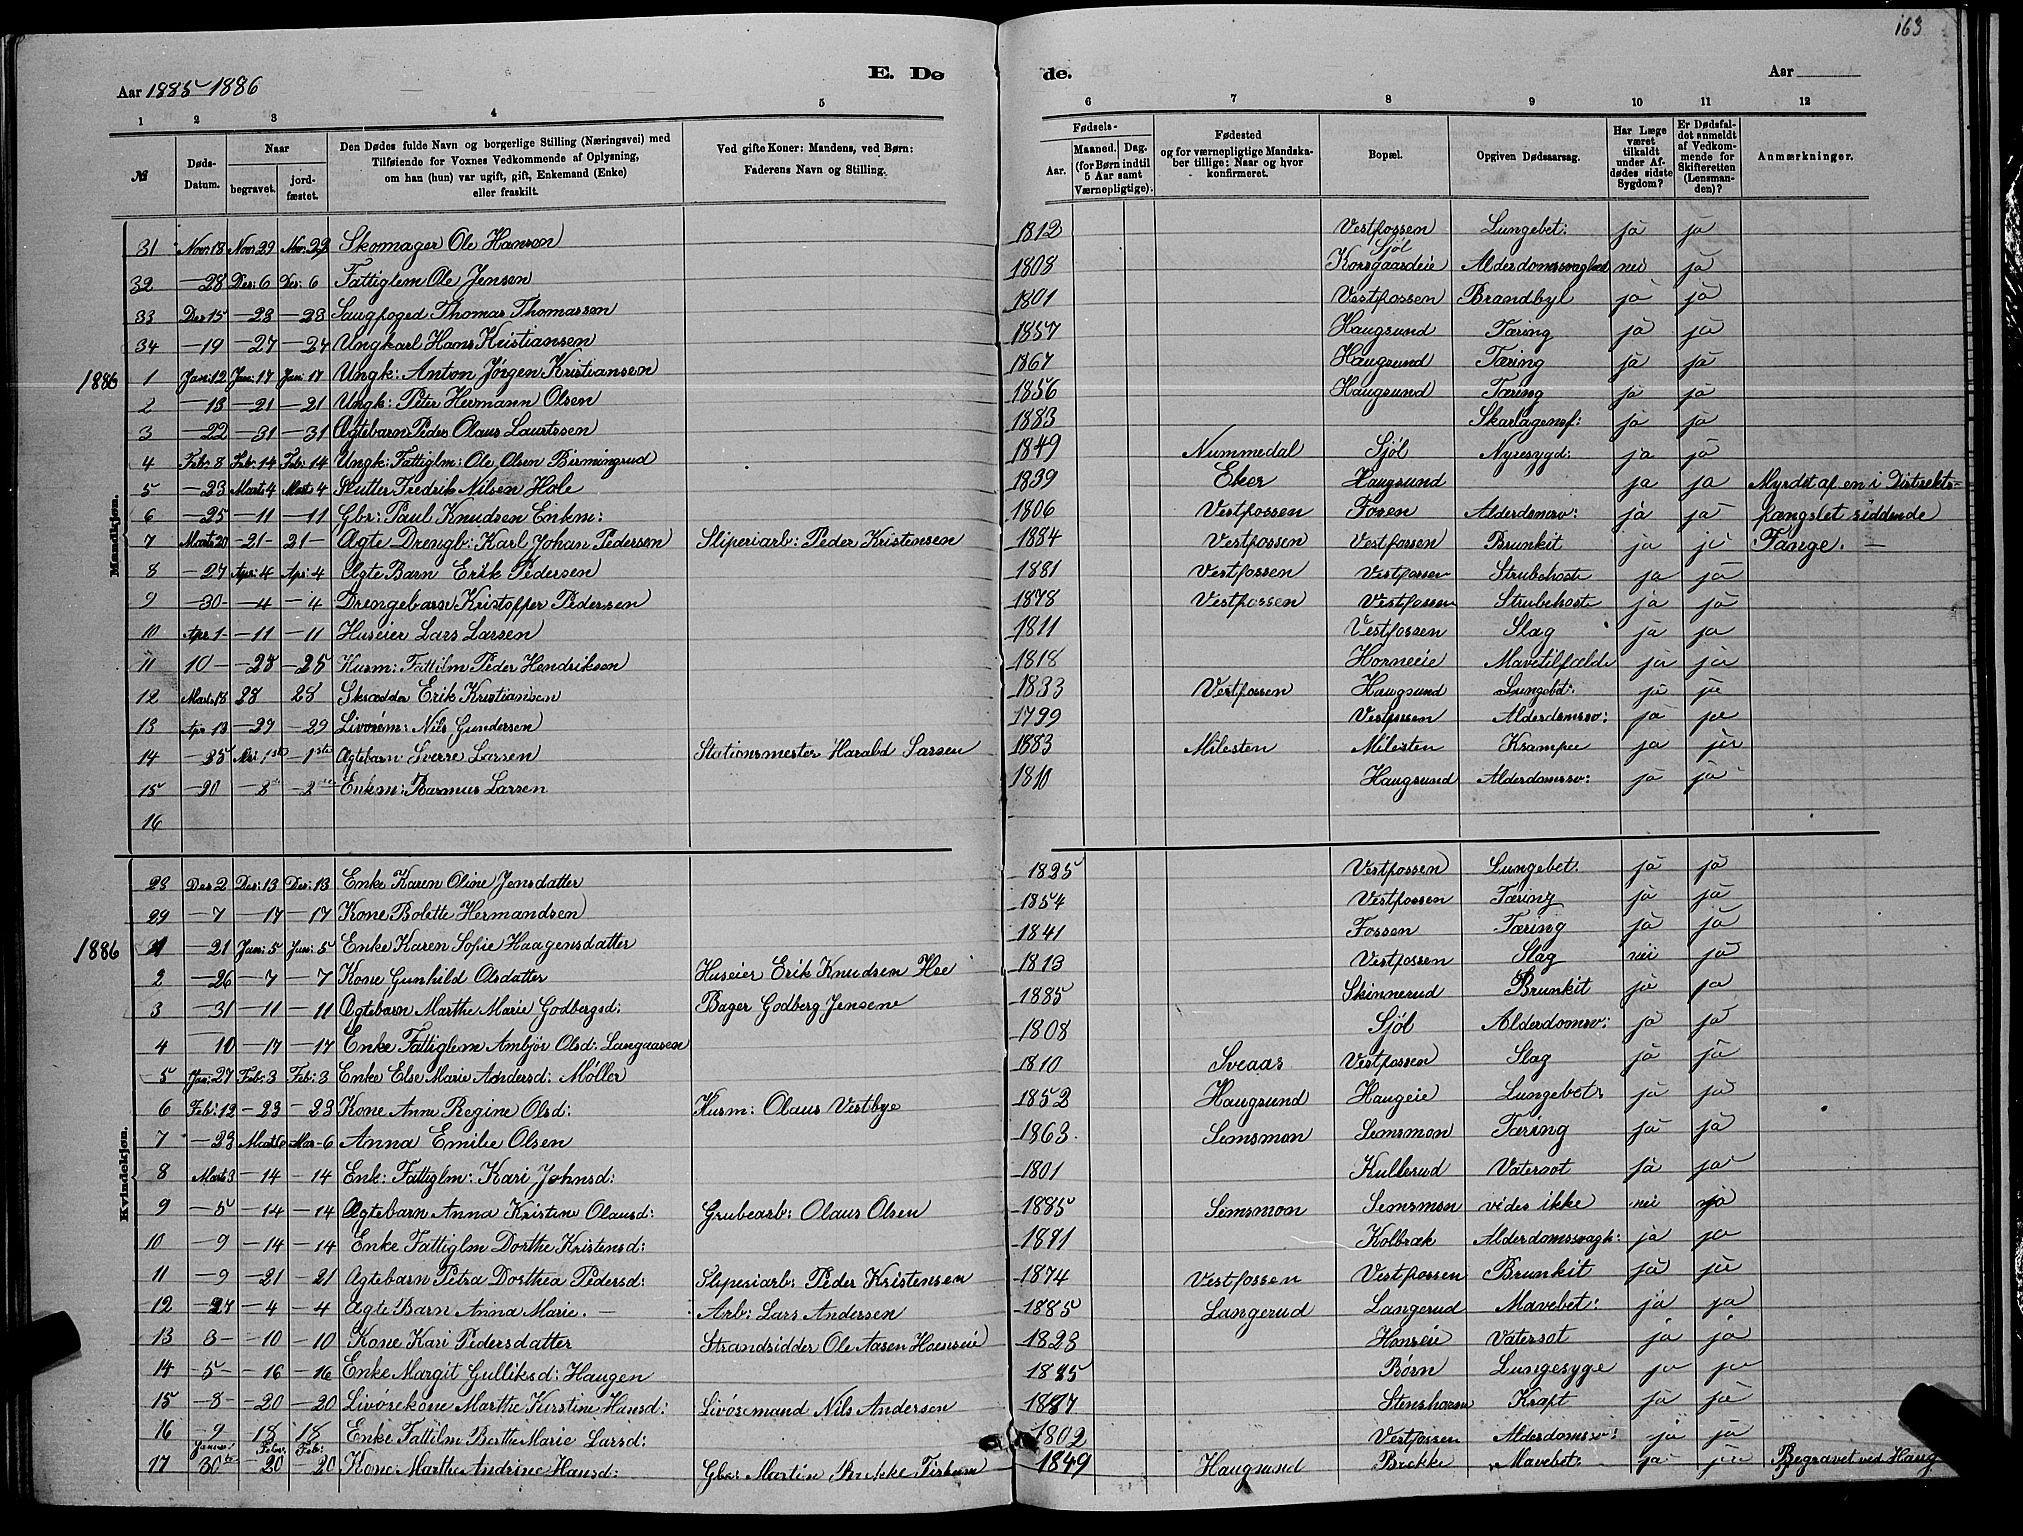 163
Aar 1885-1886
E. Dø
de.
Aar
1 2 3 4 5 6 7 8 9 10 11 12
№
Døds-
Datum.
Naar
begravet.
jord-
fæstet.
Den Dødes fulde Navn og borgerlige Stilling (Næringsvei) med
Tilføiende for Voxnes Vedkommende af Oplysning,
om han (hun) var ugift, gift, Enkemand (Enke)
eller fraskilt.
Ved gifte Koner: Mandens, ved Børn:
Faderens Navn og Stilling.
Fødsels-
Aar.
Maaned. Dag.
(for Børn indtil
5 Aar samt
Værnepligtige).
Fødested
og for værnepligtige Mandska-
ber tillige: Naar og hvor
konfirmeret.
Bopæl.
Opgiven Dødsaarsag.
Har Læge
været
tilkaldt
under Af-
dødes sidste
Sygdom?
Er Dødsfal-
det anmeldt
af Vedkom-
mende for
Skifteretten
(Lensman-
den)?
Anmærkninger.
Mandkjøn.
31 Nov: 18 Nov: 29 Nov: 29 Skomager Ole Hansen 1812 Vestfossen Lungebet: ja ja
32 — 28 Des: 6 Des: 6 Fattiglem Ole Jensen 1808 Sjöl Korsgaardeie Alderdomssvaghed nei ja
33 Des 15 — 23 — 23 Saugfoged Thomas Thomassen 1801 Vestfossen Brandbyl ja ja
34 — 19 — 27 — 27 Ungkarl Hans Kristiansen 1857 Haugsund Tæring ja ja
1886 1 Jan: 12 Jan: 17 Jan: 17 Ungk: Anton Jørgen Kristiansen 1867 Haugsund Tæring ja ja
2 — 13 — 21 — 21 Ungk: Peter Hermann Olsen 1856 Haugsund Tæring ja ja
3 — 22 — 31 — 31 Ægtebarn Peder Olaus Lauritssen 1883 Skarlagensf: ja ja
4 Feb: 8 Feb: 14 Feb: 14 Ungk: Fattiglm: Ole Olsen Birmingrud 1849 Nummedal Sjöl Nyresygd: ja ja
5 — 23 Marts 4 Marts 4 Slutter Fredrik Nilsen Hole 1839 Eker Haugsund ja ja Myrdet af en i Distrekts-
6 — 25 — 11 — 11 Gbr: Paul Knudsen Enkm: 1806 Vestfossen Fosen Alderdomsv: ja ja fængslet siddende
7 Marts 20 — 21 — 21 — Ægte Drengb: Karl Johan Pedersen Sliperiarb: Peder Kristensen 1884 Vestfossen Vestfossen Brunkit ja ja Fange. —
8 — 27 Apr: 4 Apr: 4 Ægte Barn Erik Pedersen 1881 Vestfossen Vestfossen Strubehoste ja ja
9 — 30 — — 4 — 4 Drengebarn Kristoffer Pedersen 1878 Vestfossen Vestfossen Strubehoste ja ja
10 Apr 1 — — 11 — 11 Huseier Lars Larsen 1811 Vestfossen Slag ja ja
11 10 — — 25 — 25 Husm: Fattilm Peder Hendriksen 1818 Horneeie Mavetilfælde ja ja
12 Marts 18 28 28 Skrædder Erik Kristiansen 1833 Vestfossen Haugsund Lungebet: ja ja
13 Apr 13 — 29 — 29 Livörem: Nils Gundersen 1799 Vestfossen Alderdomsv: ja ja
14 — 25 Mai 1ste — 1ste Ægtebarn Sverre Larsen Stationsmester Harald Larsen 1883 Milesten Milesten Krampe ja ja
15 — 20 — 2den — 2den Enkm: Rasmus Larsen 1810 Haugsund Alderdomssv: ja ja
16
Kvindekjøn.
28 Des 2 Des: 13 Des: 13 Enke Karen Oline Jensdatter 1825 Vestfossen Lungebet: ja ja
29 — 7 — 17 — 17 Kone Bolette Hermandsen 1854 Vestfossen Tæring ja ja
1886 1 — 21 Jan: 5 Jan: 5 Enke Karen Sofie Haagensdatter 1841 Fossen Tæring ja ja
2 — 26 — 7 — 7 Kone Gunhild Olsdatter Huseier Erik Knudsen Hoe 1813 Vestfossen Slag nei ja
3 — 31 — 11 — 11 Ægtebarn Marthe Marie Godbergsd: Bager Godberg Jensen 1885 Skinnerud Brunkit ja ja
4 — 10 — 17 — 17 Enke Fattiglem Ambjör Olsd: Langaasen 1808 Sjöl Alderdomsv: ja ja
5 Jan: 27 Feb: 3 Feb: 3 Enke Else Marie Andersd: Møller 1810 Sveaas Vestfossen Slag ja ja
6 Feb: 12 — 23 — 23 Kone Anne Regine Olsd: Husm: Olaus Vestbye 1852 Haugsund Haugeie Lungebet: ja ja
7 — 23 Marts 6 Mar — 6 Anna Emilie Olsen 1863. Semsmon Semsmon Tæring ja ja
8 Marts 3 — 14 — 14 Enk: Fattiglm: Kari Johnsd: 1801 Kullerud Vatersot ja ja
9 — 5 — 14 — 14 Ægtebarn Anna Kristine Olausd: Grubearb: Olaus Olsen 1885 Semsmon Semsmon vides ikke nei ja
10 — 9 — 14 — 14 Enke Fattiglm Dorthe Kristensd: Kolbræk Alderdomssvagh: ja ja
11 — 9 — 21 — 21 Ægtebarn Petra Dorthea Pedersd: Sliperiarb: Peder Kristensen 1874 Vestfossen Vestfossen Brunkit ja ja
12 — 27 — 4 — 4 Ægte Barn Anna Marie. — Arb: Lars Andersen 1885 Langerud Langerud Mavebet: ja ja
13 3 — — 10 — 10 Kone Kari Pedersdatter Strandsidder Ole Aasen Hoenseie 1823 Honseie Vatersot ja ja
14 — 5 — — 16 — 16 Enke Margit Gulliksd: Haugen Börn Lungesyge ja ja
15 — 8 — — 20 — 20 Livörekone Marthe Kirstine Hansd: Livösemand Nils Andersen Kræft ja ja
16 — 9 18 18 Enke Fattilm Berthe Marie Larsd: 1802 Vestfossen Alderdomsv: ja ja
17 Januar 30te Febr. 20 Feb: 20 Kone Marthe Andrine Hansd: Gbr: Martin Brekke 1849 Haugsund Brekke Mavebet: ja ja Begravet ved Haug